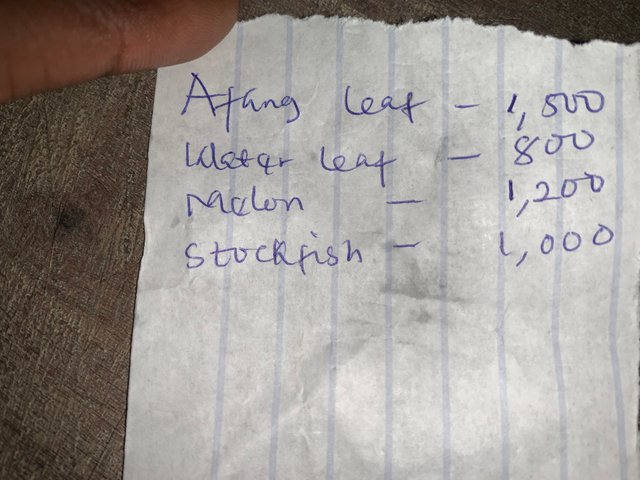 Afang leaf - 1,500
Water leaf - 800
Melon - 1,200
Stockfish - 1,000